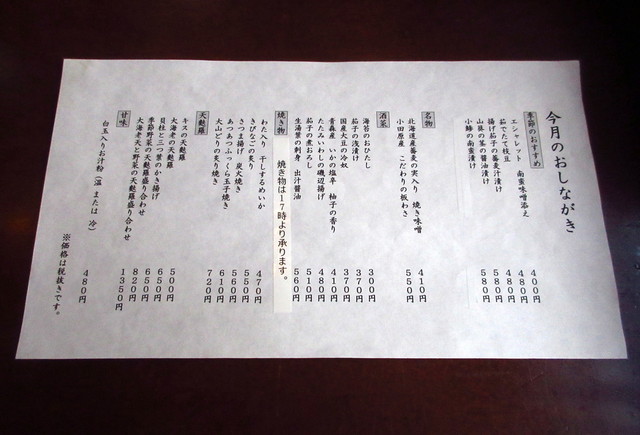 今月のおしながき
季節のおすすめ
エシャレット 南蛮味噌添え 400円
茹でたて枝豆 480円
揚げ茄子の蕎麦汁漬け 480円
山葵の茎の醤油漬け 580円
小鯵の南蛮漬け 580円
名物
北海道産蕎麦の実入り 焼き味噌 410円
小田原産 こだわりの板わさ 550円
酒菜
海苔のおひたし 300円
茄子の浅漬け 370円
国産大豆の冷奴 370円
青森産 いかの塩辛 柚子の香り 410円
たたみいわしの磯辺揚げ 480円
茄子の煮おろし 510円
生湯葉の刺身 出汁醤油 560円
焼き物
焼き物は17時より承ります。
わた入り 干しするめいか 470円
きびなごの炙り 550円
さつま揚げ 炭火焼き 560円
あつあつふっくら玉子焼き 610円
大山どりの炙り焼き 720円
天麩羅
キスの天麩羅 500円
大海老の天麩羅 650円
貝柱と三つ葉のかき揚げ 650円
季節野菜の天麩羅盛り合わせ 820円
大海老天と野菜の天麩羅盛り合わせ 1350円
甘味
白玉入りお汁粉(温 または 冷) 480円
※価格は税抜きです。